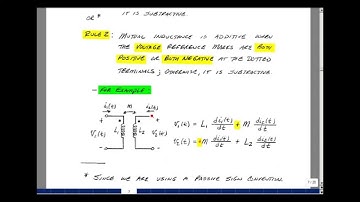 IT IS SUBTRACTIVE.
OR *
RULE 2: MUTUAL INDUCTANCE IS ADDITIVE WHEN
THE VOLTAGE REFERENCE MARKS ARE BOTH
POSITIVE OR BOTH NEGATIVE AT THE DOTTED
TERMINALS; OTHERWISE, IT IS SUBTRACTIVE
- FOR EXAMPLE -
i₁(t) M i₂(t)
+ +
V₁(t) L₁ L₂ V₂(t)
- -
V₁(t) = L₁ di₁(t)/dt + M di₂(t)/dt
V₂(t) = +M di₁(t)/dt + L₂ di₂(t)/dt
* SINCE WE ARE USING A PASSIVE SIGN CONVENTION